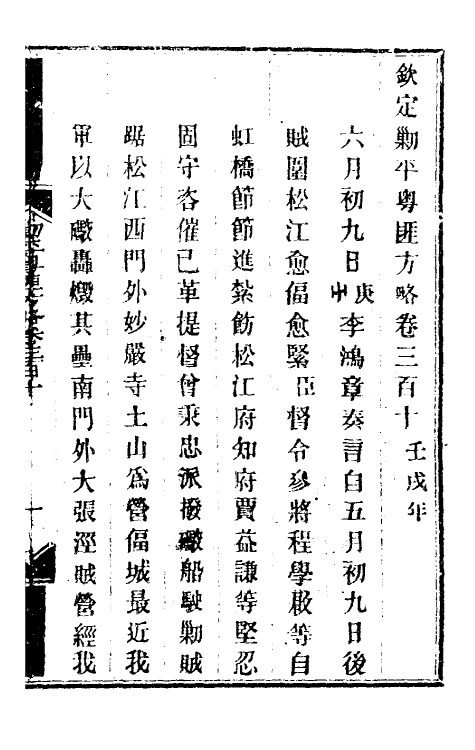 欽定剿平粤匪方略卷三百十 壬戌年
六月初九日庚申李鴻章奏言自五月初九日後
賊圍松江愈偪愈緊臣督令參將程學啟等自
虹橋節節進紮飭松江府知府賈益謙等堅忍
固守咨催已革提督曾秉忠派撥礮船駛剿賊
踞松江西門外妙嚴寺土山爲營偪城最近我
軍以大礮轟燬其壘南門外大張涇賊營經我